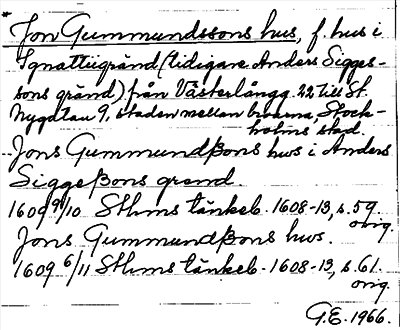 * Jon Gummundssons hus, f. hus i
Ignatiigränd (tidigare Anders Sigges-
sons gränd) från Västerlångg. 22 till St.
Nygatan 9, staden mellan broarna, Stock-
holms stad.
Jons Gummundßons hws i Anders
Siggeßons grend.
1609 9/10 Sthms tänkeb. 1608-13, s. 59
orig.
Jons Gummundßons hws.
1609 6/11 Sthms tänkeb. 1608-13, s. 61.
orig.
G.E. 1966.